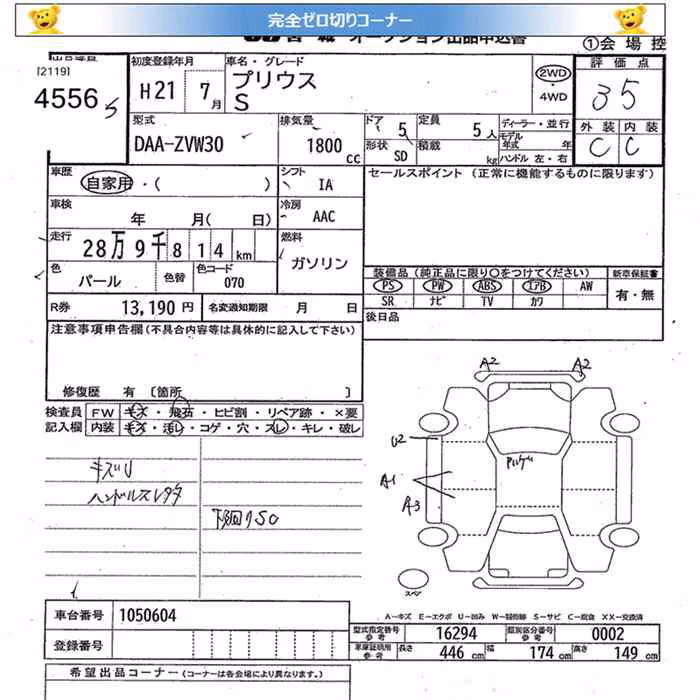 完全ゼロ切りコーナー
オークション出品申込書
①会場控
[2119]
4556
初度登録年月
H21 7月
車名・グレード
プリウス
S
2WD
4WD
評価点
35
外装 内装
C C
型式
DAA-ZVW30
排気量
1800 cc
ドア 5
形状 SD
定員 5人
積載 kg
ディーラー・並行
モデル年式 年
ハンドル 左・右
車歴
自家用・( )
シフト
IA
セールスポイント (正常に機能するものに限ります)
車検
年 月( 日)
冷房
AAC
走行
28万9千814km
燃料
ガソリン
色
パール
色替
色コード
070
装備品(純正品に限り○をつけてください)
新車保証書
PS PW ABS エアB AW
SR ナビ TV カワ
有・無
R券
13,190円
名変通知期限 月 日
後日品
注意事項申告欄(不具合内容等は具体的に記入して下さい)
修復歴 有 [箇所 ]
検査員
記入欄
FW キズ・飛石・ヒビ割・リペア跡・×要
内装 キズ・汚レ・コゲ・穴・スレ・キレ・破レ
キズU
ハンドルスレタタ
下廻りSO
A2 A2
U2
A1
A3
スペア
車台番号 1050604
登録番号
A-キズ E-エクボ U-凹み W-補修跡 S-サビ C-腐食 XX-交換済
型式指定番号 参考 16294
類別区分番号 参考 0002
車庫証明用 参考
長さ 446cm
幅 174cm
高さ 149cm
希望出品コーナー (コーナーは各会場により異なります。)